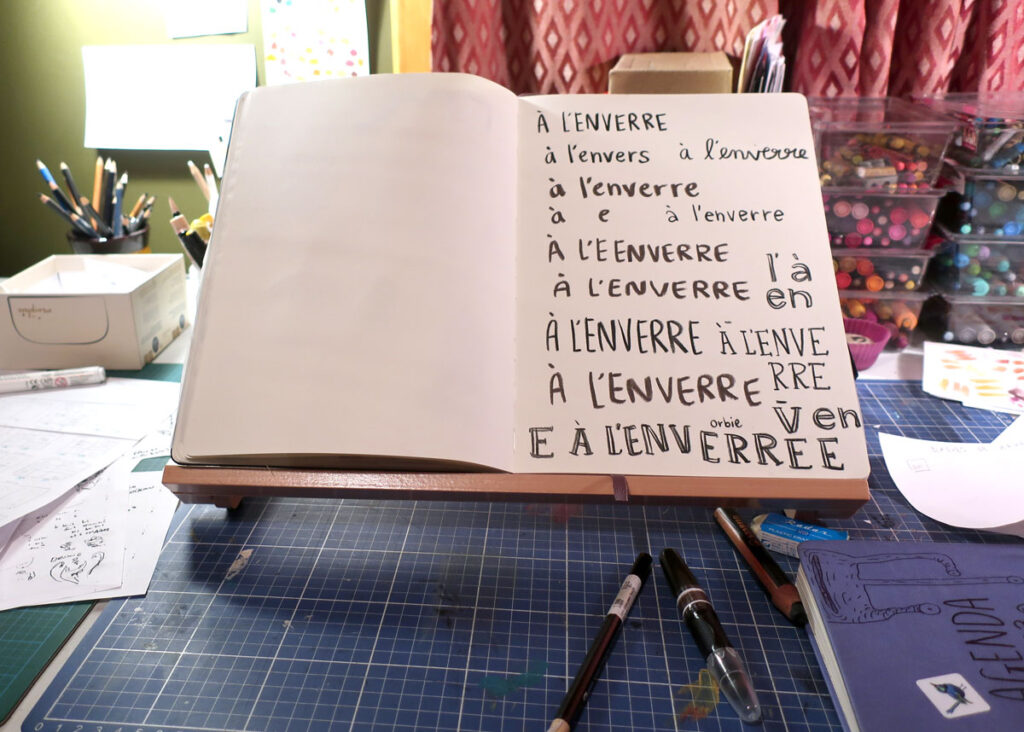 À L'ENVERRE
à l'envers à l'enverre
à l'enverre
à e à l'enverre
À L'EENVERRE
l'à
À L'ENVERRE
en
À L'ENVERRE À L'ENVE
RRE
À L'ENVERRE
V en
orbie
E À L'ENVERREE
Radar
AGENDA